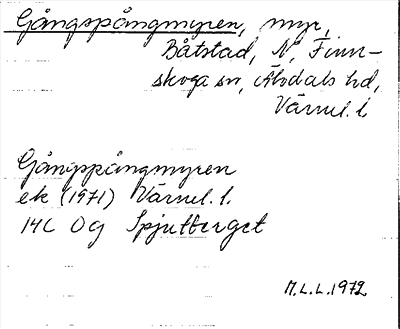 Gångspångmyren, myr,
Båtstad, N. Finn-
skoga sn, Älvdals hd,
Värml. l.
Gångspångmyren
ek (1971) Värml. l.
14C 0g Spjutberget
M.L.L. 1972